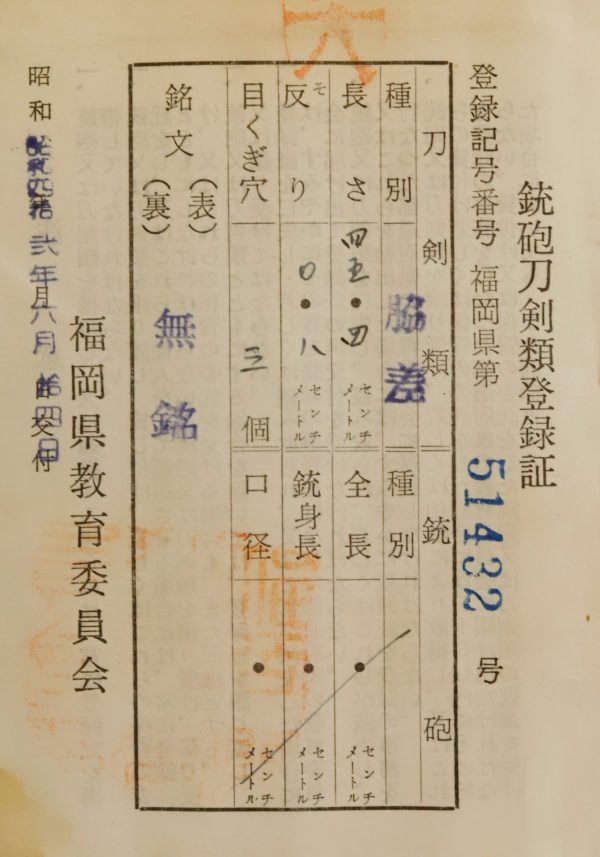 銃砲刀剣類登録証
登録記号番号 福岡県第 51432 号
刀剣類 銃砲
種別 脇差 種別
長さ 四五・四 センチメートル 全長 ・ センチメートル
反り そ 〇・八 センチメートル 銃身長 ・ センチメートル
目くぎ穴 三 個 口径 ・ センチメートル
銘文 (表) 無銘
(裏)
福岡県教育委員会
昭和四拾弐年六月拾四日交付